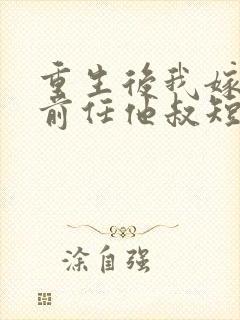 重生後我嫁
前任他叔短
涂自强